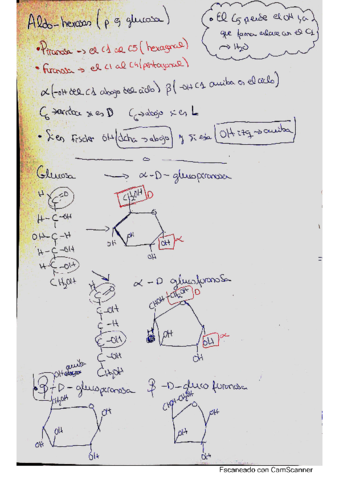 Aldo-hexosas (p ej glucosa)
• El C5 pierde el OH ya
que forma enlace con el C1
→ H2O
• Piranosa → el C1 al C5 (hexagonal)
• Furanosa → el C1 al C4 (pentagonal)
α (-OH del C1 abajo del ciclo) β (-OH C1 arriba es el ciclo)
C6 → arriba si es D C6 → abajo si es L
• Si es Fischer OH dcha → abajo y si está OH izq → arriba
Glucosa → α-D-glucopiranosa
H
C=O
H-C-OH
OH-C-H
H-C-OH
H-C-OH
CH2OH
CH2OH D
OH
OH
OH α
α-D glucofuranosa
H
C=O
C-OH
C-H
C-OH
C-OH
CH2OH
CHOH-CH2OH D
H
OH
OH α
OH
OH arriba
β-D-glucopiranosa β-D-gluco furanosa
CH2OH
OH
OH
OH
OH
CHOH-CH2OH
OH
OH
OH
Escaneado con CamScanner